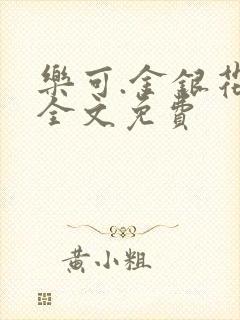 樂可.金銀花
全文免費
黃小粗